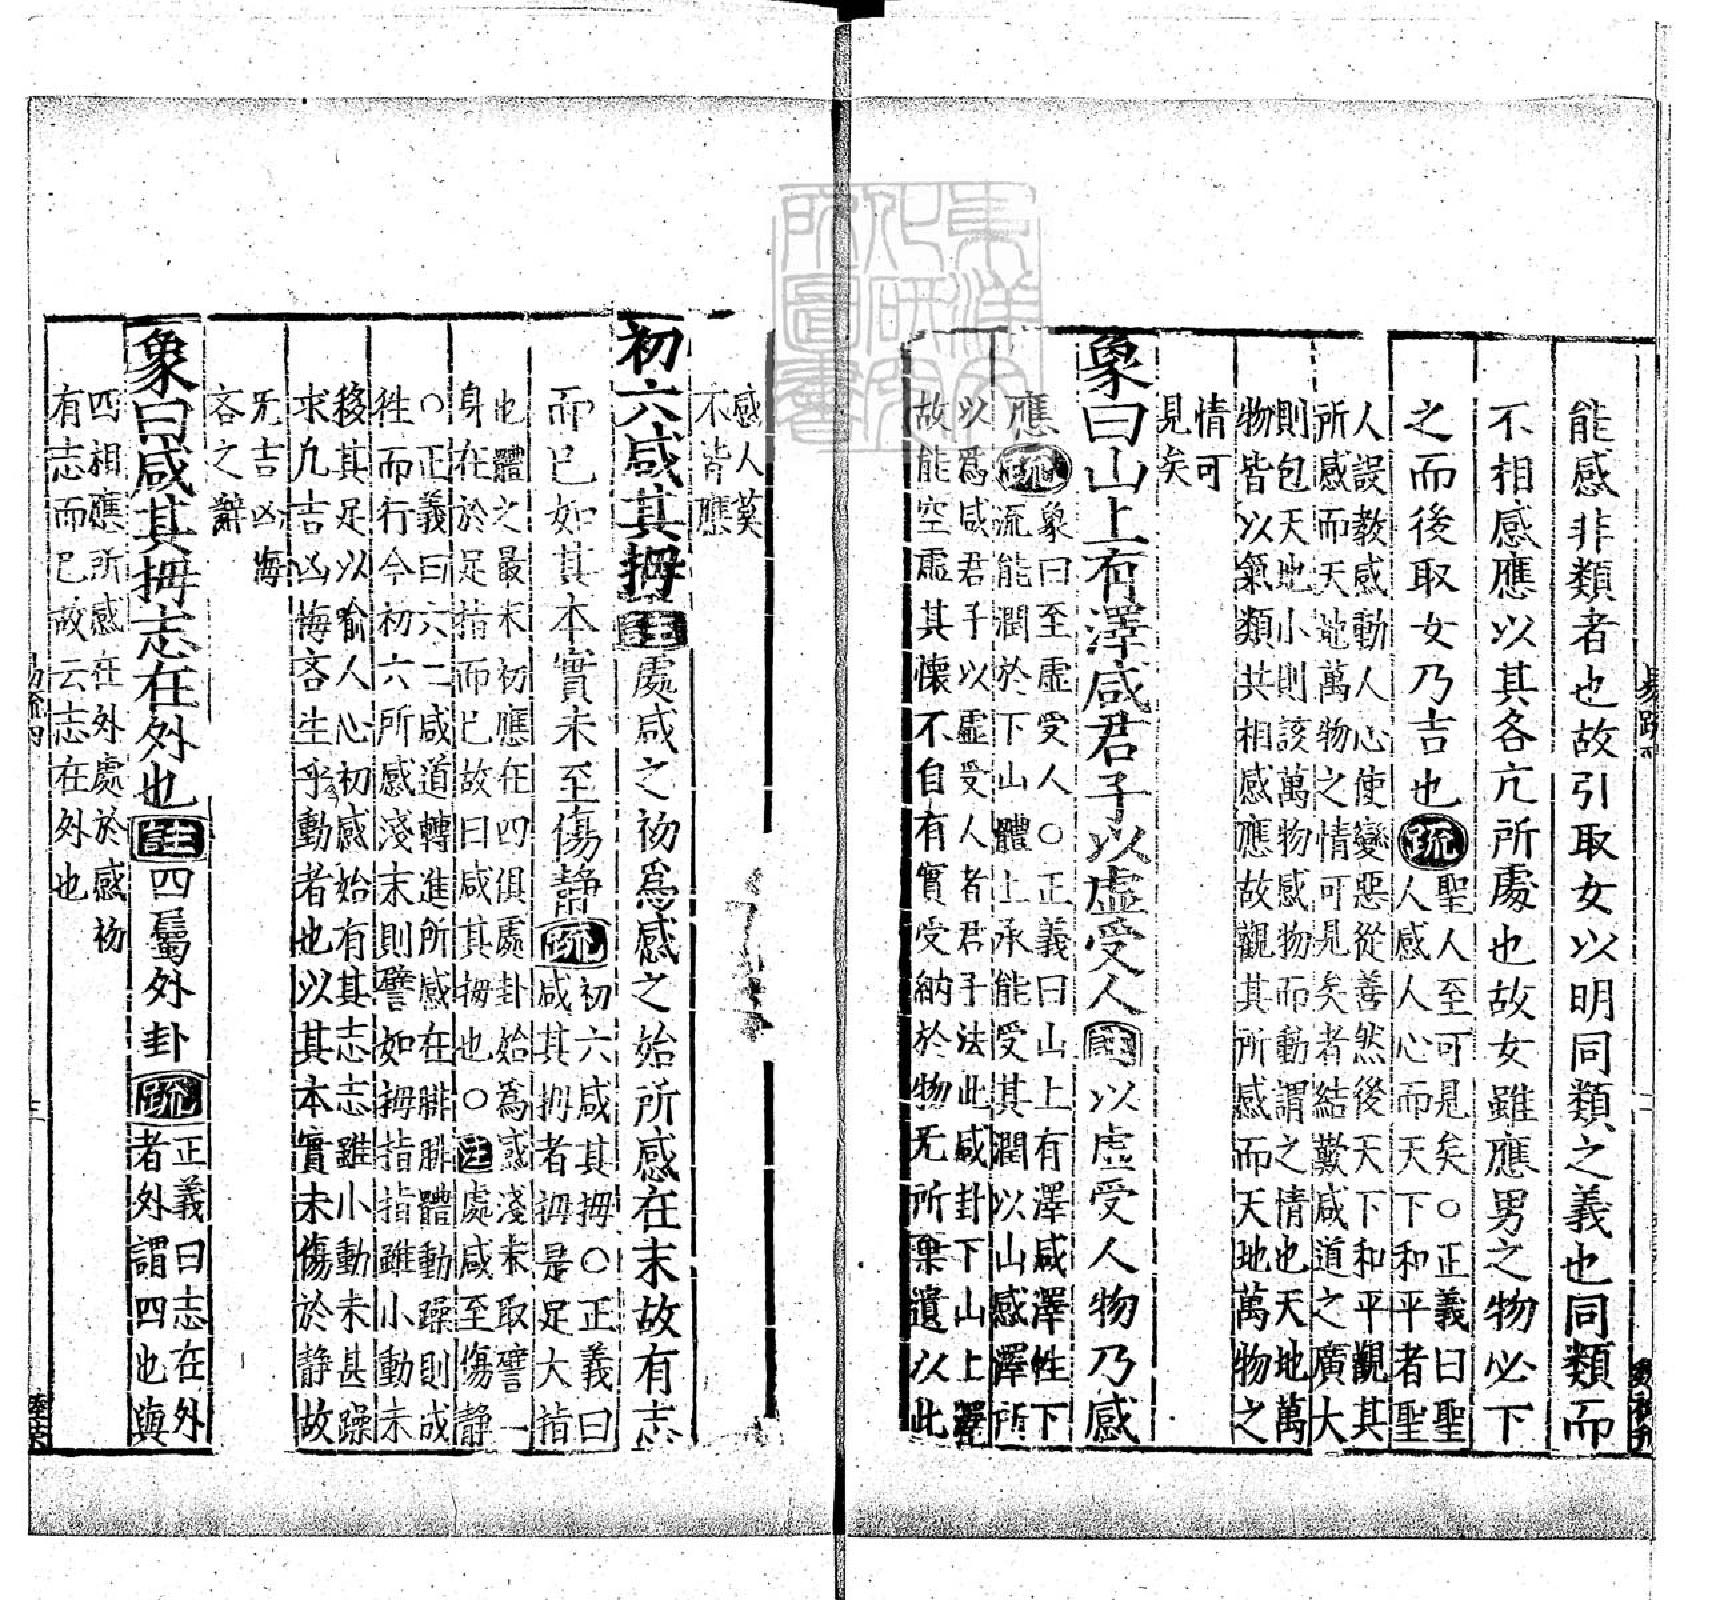 能感非類者也故引取女以明同類之義也同類而
不相感應以其各亢所處也故女雖應男之物必下
之而後取女乃吉也疏聖人至可見矣○正義曰聖
人感人心而天下和平者聖
人設教感動人心使變惡從善然後天下和平觀其
所感而天地萬物之情可見矣者結歎咸道之廣大
則包天地小則該萬物感物而動謂之情也天地萬
物皆以氣類共相感應故觀其所感而天地萬物之
情可
見矣
象曰山上有澤咸君子以虛受人註以虛受人物乃感
應疏象曰至虛受人○正義曰山上有澤咸澤性下
流能潤於下山體上承能受其潤以山感澤所
以爲咸君子以虛受人者君子法此咸卦下山上澤
故能空虛其懷不自有實受納於物无所棄遺以此
感人莫
不皆應
初六咸其拇註處咸之初爲感之始所感在末故有志
而已如其本實未至傷静疏初六咸其拇○正義曰
咸其拇者拇是足大指
也體之最末初應在四俱處卦始爲感淺末取譬一
身在於足指而已故曰咸其拇也○注處咸至傷静
○正義曰六二咸道轉進所感在腓腓體動躁則成
往而行今初六所感淺末則譬如拇指指雖小動未
移其足以喻人心初感始有其志志雖小動未甚躁
求凡吉凶悔吝生乎動者也以其本實未傷於静故
无吉凶悔
吝之辭
象曰咸其拇志在外也註四屬外卦疏正義曰志在外
者外謂四也與
四相應所感在外處於感初
有志而已故云志在外也
易疏四
二
東洋文化研究所圖書